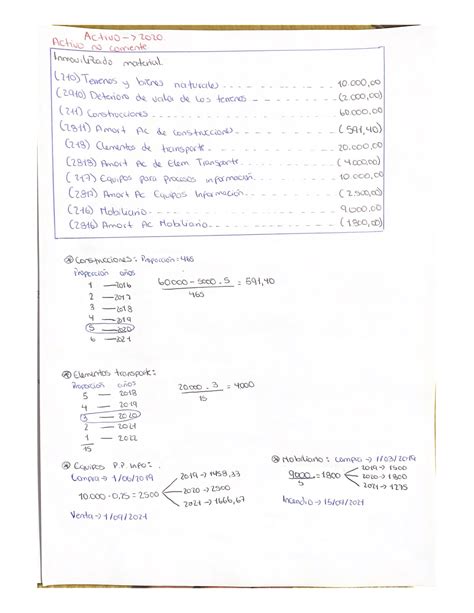 Activo -> 2020.
Activo no corriente
Inmovilizado material
(210) Terrenos y bienes naturales 10.000,00
(2910) Deterioro de valor de los terrenos (2.000,00)
(211) Construcciones 60.000,00
(2811) Amort Ac de construcciones (591,40)
(218) Elementos de transporte 20.000,00
(2818) Amort Ac de Elem Transporte (4000,00)
(217) Equipos para procesos información 10.000,00
(2817) Amort Ac Equipos Información (2.500,00)
(216) Mobiliario 9.000,00
(2816) Amort Ac Mobiliario (1800,00)
Construcciones: Proporción = 465
Proporción años
1 — 2016
2 — 2017
3 — 2018
4 — 2019
5 — 2020
6 — 2021
60000 - 5000 . 5 = 591,40
465
Elementos transporte:
Proporción años
5 — 2018
4 — 2019
3 — 2020
2 — 2021
1 — 2022
15
20000 . 3 = 4000
15
Equipos P.P. Info:
Compra -> 1/06/2019
10.000 . 0,25 = 2500
2019 -> 1458,33
2020 -> 2500
2021 -> 1666,67
Venta -> 1/09/2021
Mobiliario: Compra -> 1/03/2019
9000 = 1800
5
2019 -> 1500
2020 -> 1800
2021 -> 1275
Incendio -> 15/09/2021